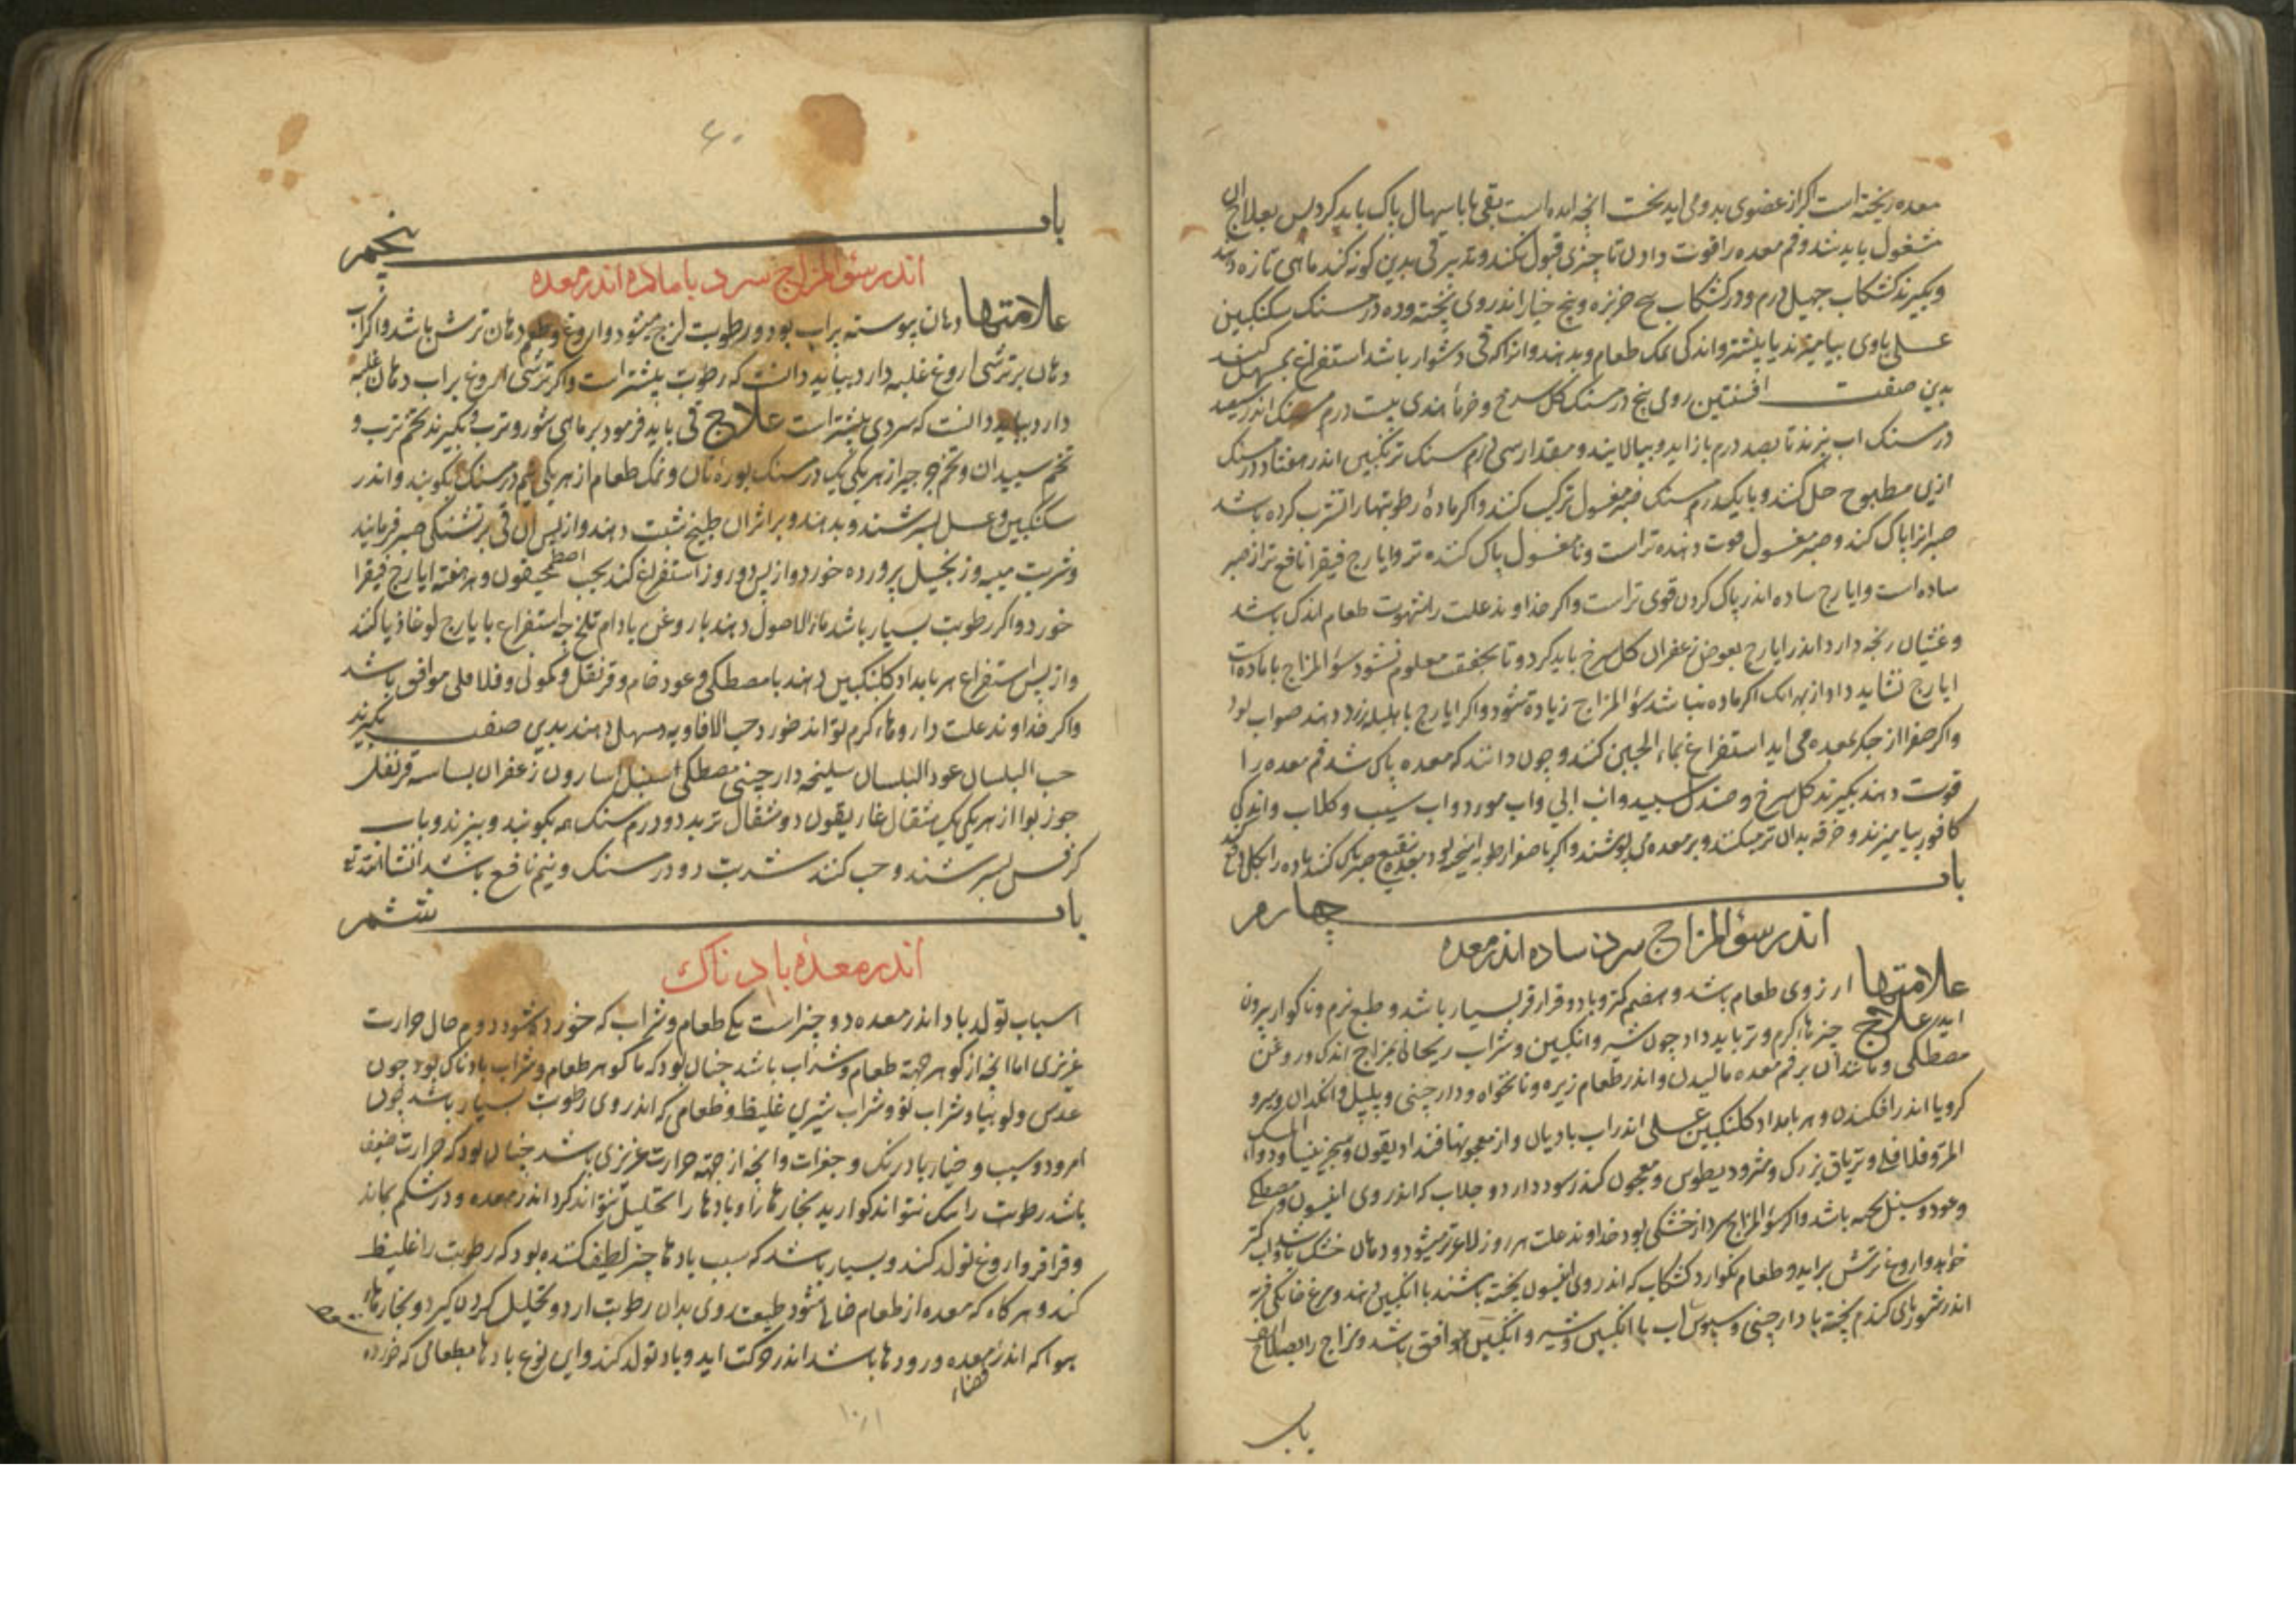 معده ریخته است اگر از عضوی بدو می اید نخست انچه امده است بقی یا باسهال پاک باید کرد پس بعلاج ان
مشغول باید شد و فم معده را قوت دادن تا چیزی قبول نکند و تدبیر قی بدین کونه کند ماهی تازه دهند
و بکیرند کشکاب چهل درم و در کشکاب بیخ خربزه و بیخ خیار اندر وی پخته و ده درمسنک سکنکبین
عسلی باوی بیامیزند یا بیشتر و اندکی نمک طعام و بدهند و انرا که قی دشوار باشد استفراغ بمسهل کنند
بدین صفت افسنتین رومی پنج درمسنک کل سرخ و خرماء هندی بیست درم سنک اندر سیصد
درمسنک اب بپزند تا بصد درم باز اید و بپالایند و مقدار سی درم سنک ترنکبین اندر هفتاد درمسنک
ازین مطبوخ حل کنند و با یکدرم سنک صبر مغسول ترکیب کنند و اکر مادهٔ رطوبتها را تشرب کرده باشد
صبر انرا پاک کند و صبر مغسول قوت دهنده تر است و نامغسول پاک کننده تر و ایارج فیقرا نافع تر از صبر
ساده است و ایارج ساده اندر پاک کردن قوی تر است و اکر خداوند علت را شهوت طعام اندک باشد
و غثیان رنجه دارد اندر ایارج بعوض زعفران کل سرخ باید کرد و تا بحقیقت معلوم نشود سؤالمزاج با ماده است
ایارج نشاید داد از بهر انک اکر ماده نباشد سؤالمزاج زیادة شود و اکر ایارج با هلیله زرد دهند صواب بود
و اکر صفرا از جکر بمعده می اید استفراغ بماء الجبن کنند و چون دانند که معده پاک شد فم معده را
قوت دهند بکیرند کل سرخ و صندل سپید و اب ابی و اب مورد و اب سیب و کلاب و اندکی
کافور بیامیزند و خرقه بدان تر میکنند و بر معده می پوشند و اکر با صفرا رطوبه امیخته بود معده بنقیع صبر پاک کنند
باب چهارم
اندر سؤالمزاج سرد ساده اندر معده
علامتها ارزوی طعام باشد و هضم کمتر و باد و قراقر بسیار باشد و طبع نرم و ناکوار بیرون
اید علاج چیزهاء کرم و تر باید داد چون شیر و انکبین و شراب ریحانی بمزاج اندک و روغن
مصطکی و مانند ان بر فم معده مالیدن و اندر طعام زیره و نانخواه و دارچینی و پلپل و انکدان و
کرویا اندر افکندن و هر بامداد کلنکبین عسلی اندر اب بادیان و از معجونها قنداديقون و سجزینیا و دواء المسک
المر و فلافلی و تریاق بزرک و مثرودیطوس و معجون کندر سود دارد و جلاب که اندر وی انیسون و مصطکی
و عود و سنبل پخته باشد و اکر سؤالمزاج سرد از خشکی بود خداوند علت هر روز لاغرتر میشود و دهان خشک باشد و اب کمتر
خواهد و اروغ ترش براید و طعام نکوارد کشکاب که اندر وی انیسون پخته باشند با انکبین دهند و مرغ خانکی فربه
اندر شوربای کندم پخته با دارچینی و سبوس اب با انکبین و شیر و انکبین موافق باشد و مزاج را بصلاح
باب
۶۰
باب پنجم
اندر سؤالمزاج سرد با ماده اندر معده
علامتها دهان پیوسته پر اب بود و رطوبت لزج میشود و اروغ و طعم دهان ترش باشد و اکر اب
دهان بر ترشی اروغ غلبه دارد بباید دانست که رطوبت بیشتر است و اکر ترشی اروغ بر اب دهان غلبه
دارد بباید دانست که سردی بیشتر است علاج قی باید فرمود بر ماهی شور و ترب و بکیرند تخم ترب و
تخم سپندان و تخم جرجیر از هر یکی یک درمسنک بوره نان و نمک طعام از هر یکی نیم درمسنک بکوبند و اندر
سکنکبین و عسل بسرشند و بدهند و بر اثر ان طبیخ شبت دهند و از پس ان قی بر تشنکی صبر فرمایند
و شربت میبه و زنجبیل پرورده خورد و از پس دو روز استفراغ کند بحب اصطمحیقون و هر هفته ایارج فیقرا
خورد و اکر رطوبت بسیار باشد ماء الاصول دهند با روغن بادام تلخ چه استفراغ با ایارج لوغاذیا کنند
و از پس استفراغ هر بامداد کلنکبین دهند با مصطکی و عود خام و قرنفل و کمونی و فلافلی موافق باشد
و اکر خداوند علت داروهاء کرم نتواند خورد حب الافاویه مسهل دهند بدین صفت بکیرند
حب البلسان عود البلسان سلیخه دارچینی مصطکی سنبل اسارون زعفران بسباسه قرنفل
جوز بوا از هر یکی یک مثقال غاریقون دو مثقال تربد دو درم سنک همه بکوبند و ببیزند و باب
کرفس بسرشند و حب کنند شربت دو درمسنک و نیم نافع باشد انشاالله تع
باب ششم
اندر معدهٔ باد ناک
اسباب تولد باد اندر معده دو چیز است یکی طعام و شراب که خورده شود دوم حال حرارت
غریزی اما انچه از کوهر جهة طعام و شراب باشد چنان بود که تا کوهر طعام و شراب بادناک بود چون
عدس و لوبیا و شراب نو و شراب شیرین غلیظ و طعامی که اندر وی رطوبت بسیار باشد چون
امرود و سیب و خیار بادرنک و جغرات و انچه از جهة حرارت غریزی باشد چنان بود که حرارت ضعیف
باشد رطوبت را نیک نتواند کوارید بخارها را و بادها را تحلیل نتواند کرد اندر معده و در شکم بماند
و قراقر و اروغ تولد کند و بسیار باشد که سبب بادها چیز لطیف کننده بود که رطوبت را غلیظ
کند و هر کاه که معده از طعام خالی شود طبیعت روی بدان رطوبت ارد و تحلیل کردن کیرد و بخارهاء
هوا که اندر معده و رودها باشد اندر حرکت اید و باد تولد کند و این نوع بادها بطعامی که خورده
فضاء